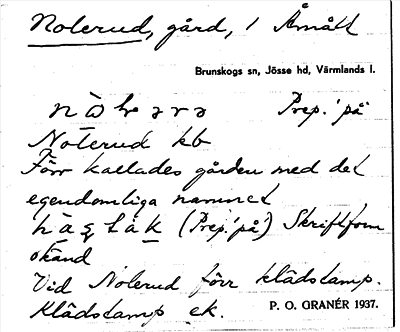 Nolerud, gård, 1 Åmått
Brunskogs sn, Jösse hd, Värmlands l.
Prep. 'på'
Nolerud kb
Förr kallades gården med det
egendomliga namnet
(Prep. 'på') Skriftform
okänd
Vid Nolerud förr klädstamp.
Klädstamp ek.
P. O. GRANÉR 1937.